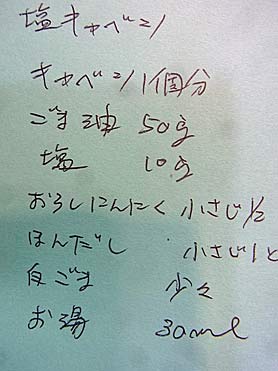 塩キャベツ
キャベツ1個分
ごま油 50g
塩 10g
おろしにんにく 小さじ1/2
ほんだし 小さじ1と
白ごま 少々
お湯 30ml